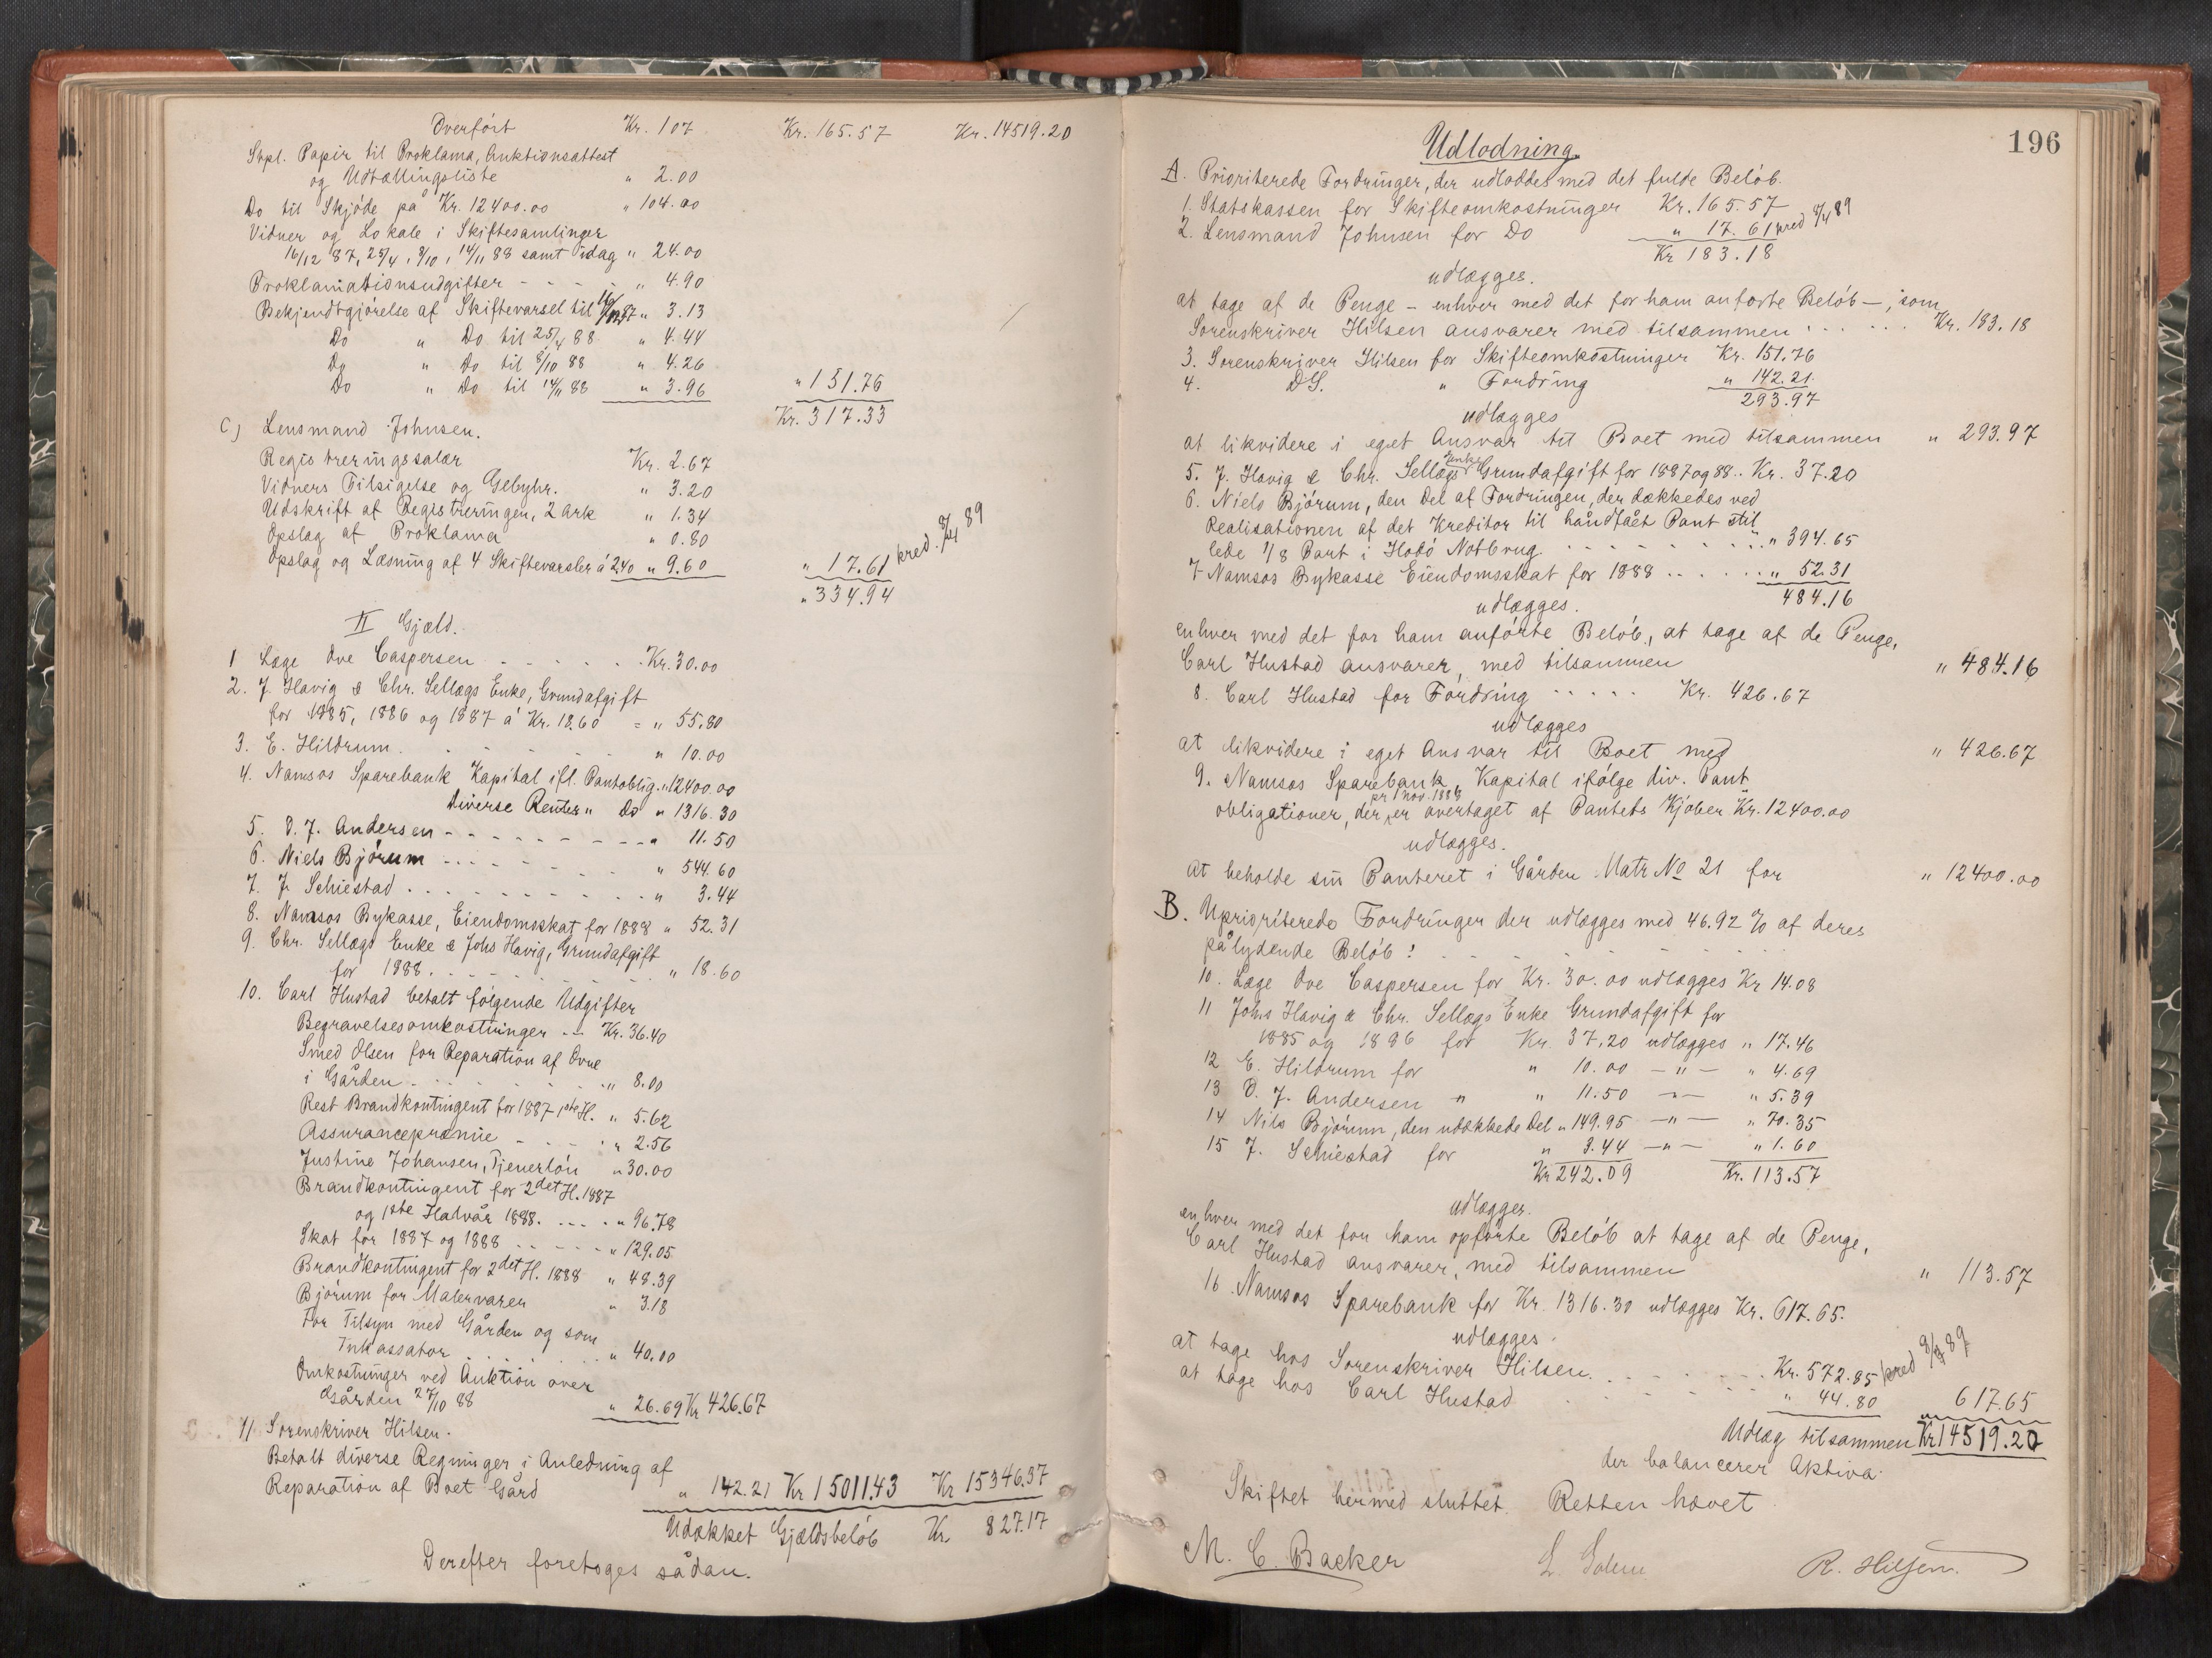 Overført Kr. 107 Kr. 165.57 Kr. 14519.20
Stpl. Papir til Proklama, Auktionsattest
og Udtællingsliste " 2.00
Do til Skjøde på Kr. 12400.00 " 104.00
Vidner og Lokale i Skiftesamlinger
16/12 87, 25/4, 8/10, 14/11 88 samt idag " 24.00
Proklamationsudgifter - - - " 4.90
Bekjendtgjørelse af Skiftevarsel til 16/12 87 " 3.13
Do " Do til 25/4 88 " 4.44
Do " Do til 8/10 88 " 4.26
Do " Do til 14/11 88 " 3.96 " 151.76
Kr. 317.33
C) Lensmand Johnsen.
Registreringssalær Kr. 2.67
Vidners Tilsigelse og Gebyhr. " 3.20
Udskrift af Registreringen, 2 Ark " 1.34
Opslag af Proklama " 0.80
Opslag og Læsning af 4 Skiftevarsler á 2.40 " 9.60 " 17.61 kred. 8/4 89
" 334.94
II Gjæld.
1 Læge Ove Caspersen - - - - - Kr. 30.00
2. J. Havig & Chr. Sellægs Enke, Grundafgift
for 1885, 1886 og 1887 á Kr. 18.60 = " 55.80
3. E. Hildrum. " 10.00
4. Namsos Sparebank Kapital ifl. Pantoblig. " 12400.00
Diverse Renter " Do " 1316.30
5. O. J. Andersen - - - - - - - " 11.50
6. Niels Bjørum - - - - " 544.60
7. J. Schiestad . . . . . . . . " 3.44
8. Namsos Bykasse, Eiendomsskat for 1888 " 52.31
9. Chr. Sellægs Enke & Johs Havig, Grundafgift
for 1888. - - - - - " 18.60
10. Carl Hustad betalt følgende Udgifter
Begravelsesomkostninger - - Kr. 36.40
Smed Olsen for Reparation af Ovne
i Gården - - - - - " 8.00
Rest Brandkontingent for 1887 1ste H. " 5.62
Assurancepræmie - - - - " 2.56
Justine Johansen, Tjenerløn " 30.00
Brandkontingent for 2det H. 1887
og 1ste Halvår 1888. - - - " 96.78
Skat for 1887 og 1888 - - - - " 129.05
Brandkontingent for 2det H. 1888 " 48.39
Bjørum for Malervarer " 3.18
For Tilsyn med Gården og som
Inkassator . . . . . . " 40.00
Omkostninger ved Auktion over
Gården 27/10 88 " 26.69 Kr 426.67
11 Sorenskriver Hilsen.
Betalt diverse Regninger i Anledning af
Reparation af Boet Gård " 142.21 Kr 15011.43 Kr 15346.37
Udækket Gjældsbeløb Kr 827.17
Derefter foretoges sådan.
196
Udlodning.
A. Prioriterede Fordringer, der udloddes med det fulde Beløb.
1. Statskassen for Skifteomkostninger Kr. 165.57
2. Lensmand Johnsen for Do " 17.61 kred 8/4 89
Kr 183.18
udlægges.
at tage af de Penge - enhver med det for ham anførte Beløb -, som
Sorenskriver Hilsen ansvarer med tilsammen . . . . . . Kr. 183.18
3. Sorenskriver Hilsen for Skifteomkostninger Kr. 151.76
4. DS. " Fordring " 142.21
293.97
udlægges
at likvidere i eget Ansvar til Boet med tilsammen " 293.97
5. J. Havig & Chr. Sellægs Enke Grundafgift for 1887 og 88 .. Kr. 37.20
6. Niels Bjørum, den Del af Fordringen, der dækkedes ved
Realisationen af det Kreditor til håndfået Pant stil
lede 1/8 Part i Hodø Notbrug - - - - - - " 394.65
7 Namsos Bykasse Eiendomsskat for 1888 . . . . . " 52.31
484.16
udlægges.
enhver med det for ham anførte Beløb, at tage af de Penge,
Carl Hustad ansvarer, med tilsammen " 484.16
8. Carl Hustad for Fordring . . . . . Kr. 426.67
udlægges
at likvidere i eget Ansvar til Boet med " 426.67
9. Namsos Sparebank, Kapital ifølge div. Pant
obligationer, der pr 1 nov. 1888 er overtaget af Pantets Kjøber Kr. 12400.00
udlægges.
at beholde sin Panteret i Gården Matr No 21 for " 12400.00
B. Uprioriterede Fordringer der udlægges med 46.92 % af deres
pålydende Beløb!
10. Læge Ove Caspersen for Kr. 30.00 udlægges Kr 14.08
11 Johs Havig & Chr. Sellægs Enke Grundafgift for
1885 og 1886 for Kr. 37,20 udlægges " 17.46
12 E. Hildrum for " 10.00 - " - " 4.69
13 O. J. Andersen " " 11.50 - " - " 5.39
14 Nils Bjørum, den udækkede Del " 149.95 - " - " 70.35
15 J. Schiestad for " 3.44 - " - " 1.60
Kr 242.09 Kr. 113.57
udlægges.
enhver med det for ham opførte Beløb at tage af de Penge,
Carl Hustad ansvarer, med tilsammen " 113.57
16. Namsos Sparebank for Kr. 1316.30 udlægges Kr. 617.65.
udlægges.
at tage hos Sorenskriver Hilsen. . . . . . Kr. 572.85 kred 8/4 89
at tage hos Carl Hustad " 44.80 617.65
Udlæg tilsammen Kr 14519.20
der balancerer Aktiva.
Skiftet hermed sluttet. Retten hævet
M. C. Backer R. Hilsen.